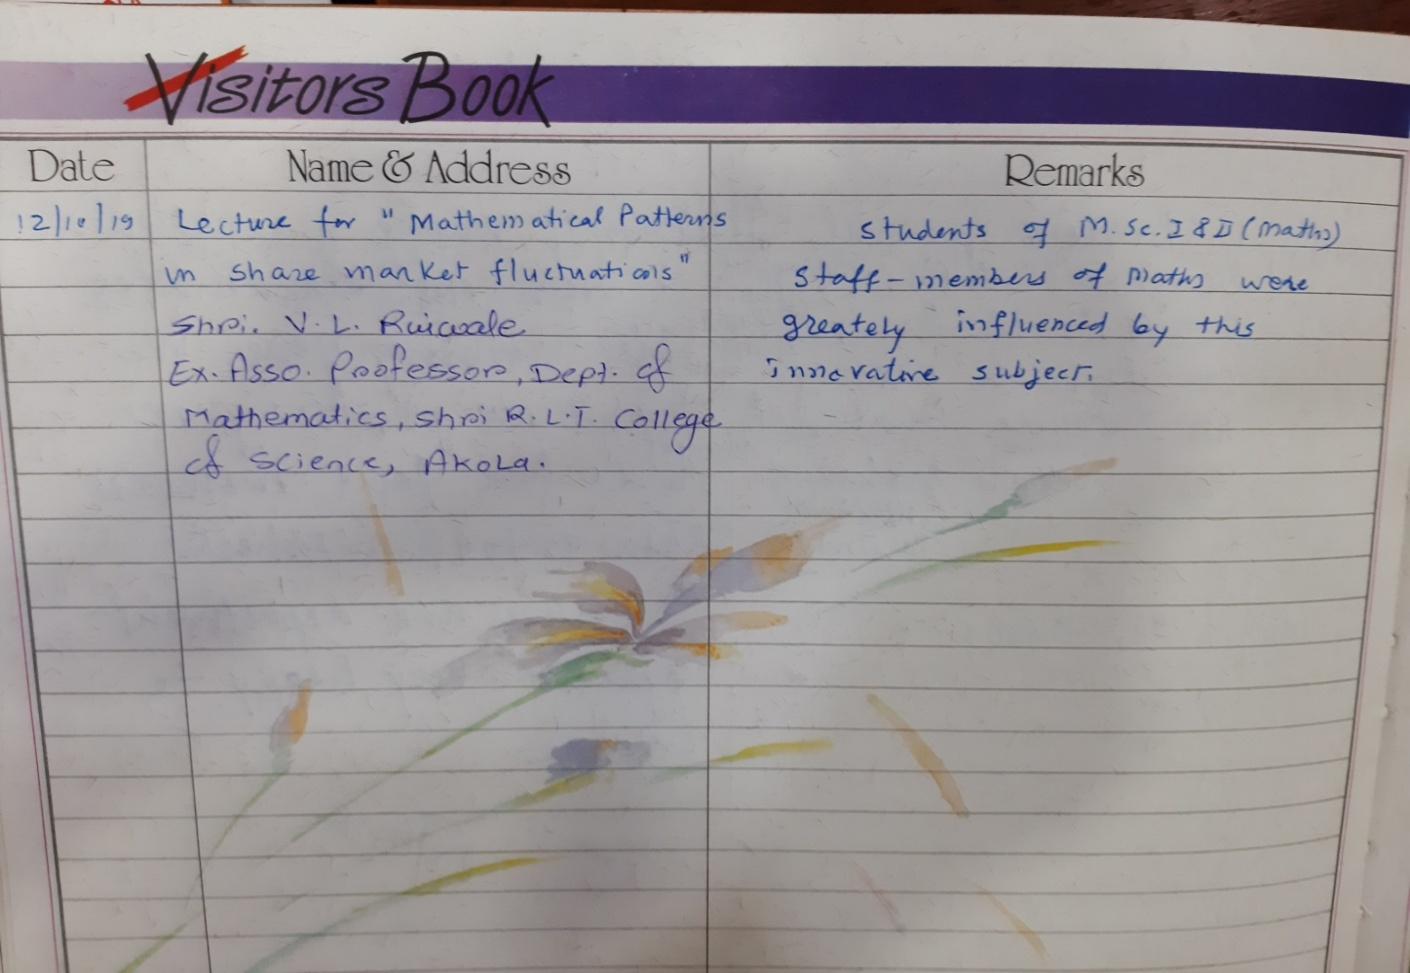 Visitors Book
Date Name & Address Remarks
12/10/19 Lecture for "Mathematical Patterns
in share market fluctuations"
Shri. V. L. Ruiwale
Ex. Asso. Professor, Dept. of
Mathematics, Shri R.L.T. College
of Science, Akola.
Students of M.Sc. I & II (Maths)
Staff-members of Maths were
greately influenced by this
innovative subject.